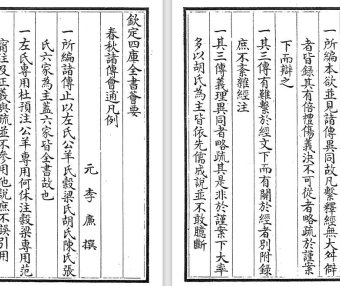 欽定四庫全書薈要
春秋諸傳會通凡例
元 李廉 撰
一所編諸傳止以左氏公羊氏穀梁氏胡氏陳氏張
氏六家為主蓋六家皆全書故也
一左氏專用杜預注公羊專用何休注穀梁專用范
甯注及正義與疏並不參用他說庶不誤引用
一所編本欲並見諸傳異同故凡繫釋經無大舛僻
者皆錄其有倍禮傷義決不可從者略疏於謹案
下而辯之
一其三傳有雖繫於經文下而有關於經者别附錄
庶不紊雜經注
一其三傳義理異同者略疏其是非於謹案下大率
多以胡氏為主皆依先儒成說並不敢臆斷